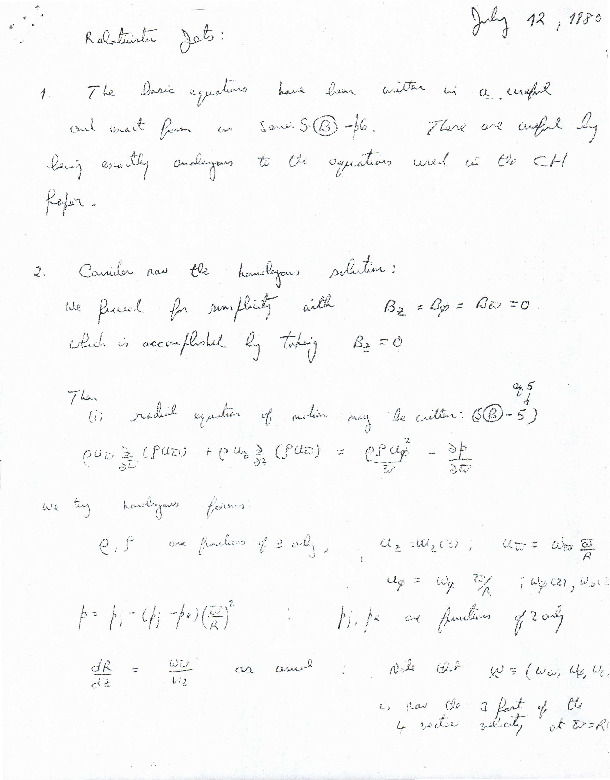 July 12, 1980
Relativistic Jets:
1. The basic equations have been written in a useful
and exact form in S Ⓑ - p6. These are useful by
being exactly analogous to the equations used in the CH
Paper.
2. Consider now the homologous solution:
We proceed for simplicity with B_z = B_φ = B_ϖ = 0
which is accomplished by taking B_z = 0
Then
(i) radial equation of motion may be written: (S Ⓑ - 5) eq 5
ρ u_ϖ ∂/∂ϖ (f u_ϖ) + ρ u_z ∂/∂z (f u_ϖ) = ρ f u_φ² / ϖ - ∂p/∂ϖ
We try homologous forms:
ρ, f are functions of z only, u_z = w_z(z); u_ϖ = w_ϖ ϖ/R
u_φ = w_φ ϖ/R ; w_φ(z),
p = p_j - (p_j - p_e)(ϖ/R)² : p_j, p_e are functions of z only
dR/dz = w_ϖ/w_z as usual : Note that w = (w_ϖ, w_φ, w_z
is now the 3 part of the
4 vector velocity at ϖ = R